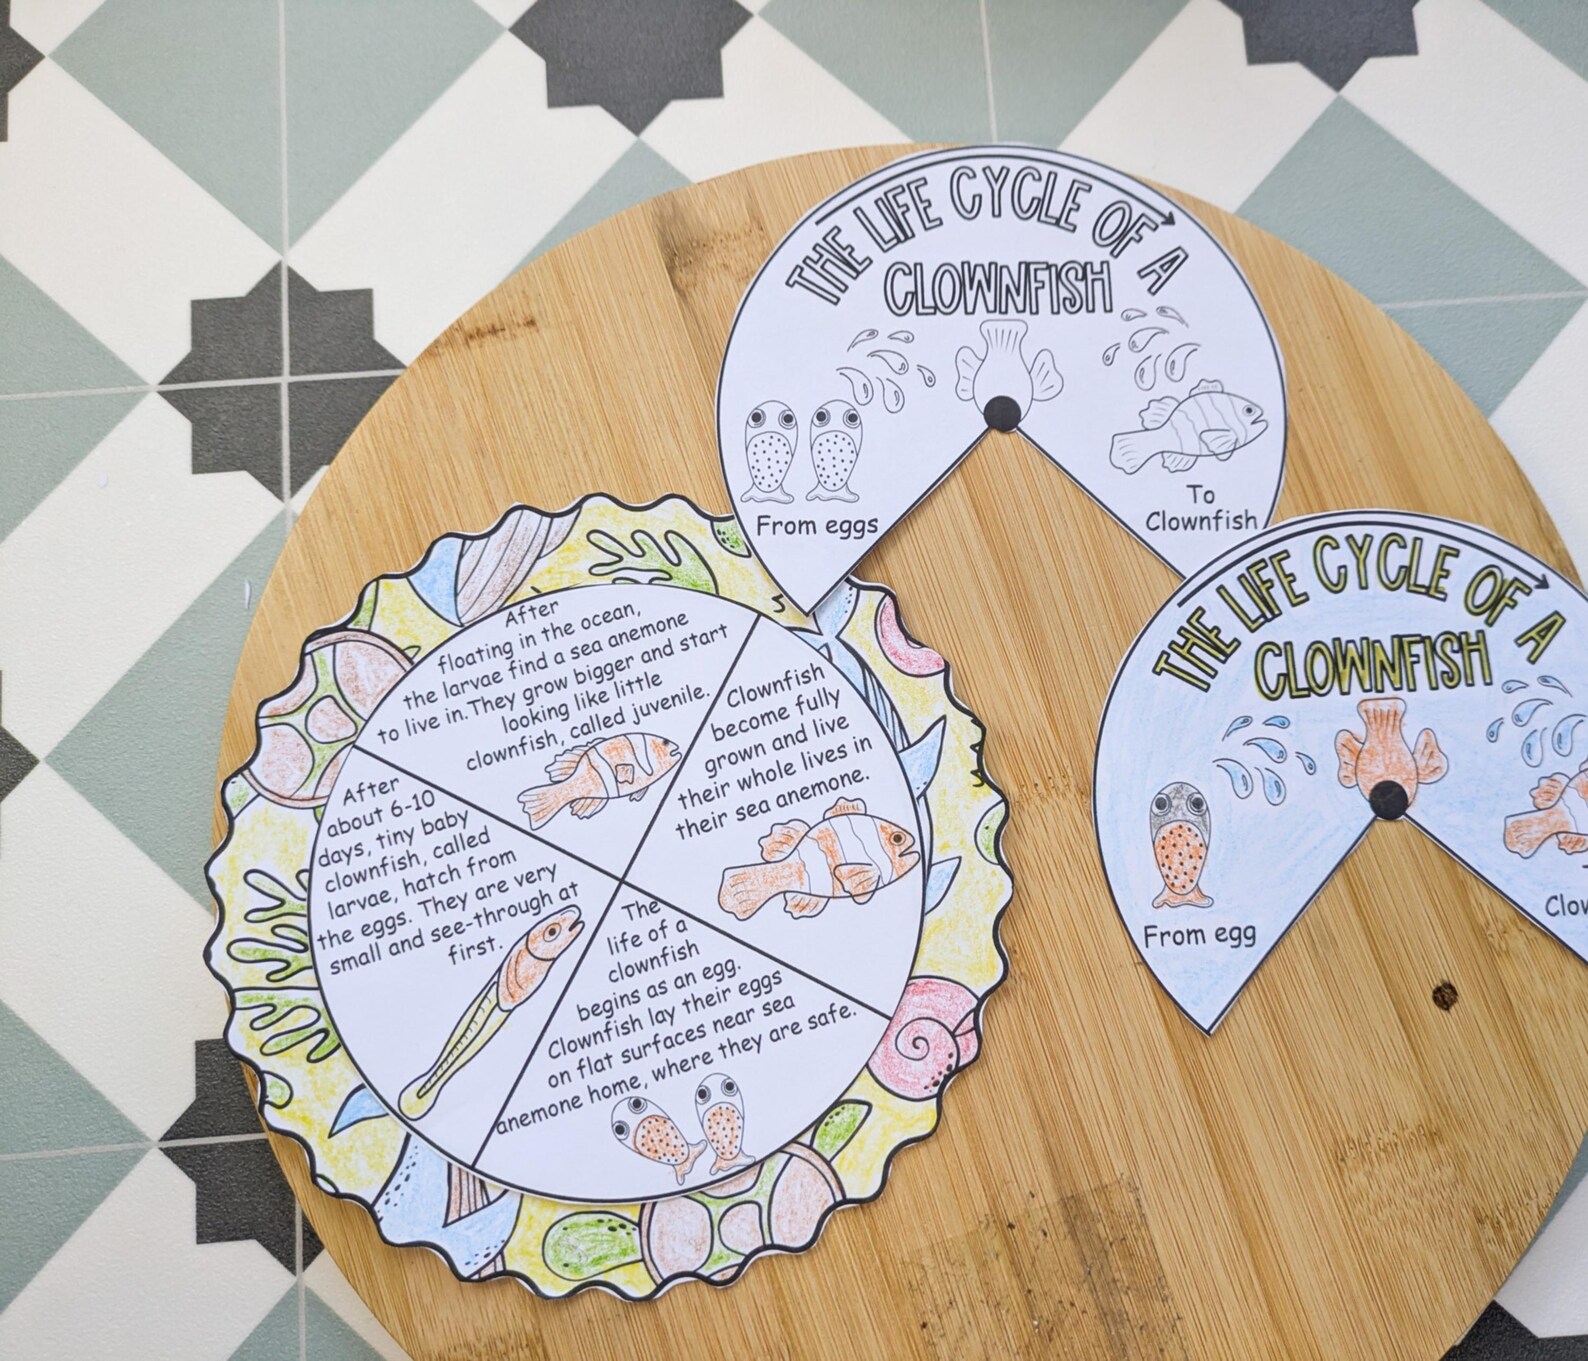 THE LIFE CYCLE OF A
CLOWNFISH
From eggs
To
Clownfish
THE LIFE CYCLE OF A
CLOWNFISH
From egg
After
floating in the ocean,
the larvae find a sea anemone
to live in.They grow bigger and start
looking like little
clownfish, called juvenile.
Clownfish
become fully
grown and live
their whole lives in
their sea anemone.
After
about 6-10
days, tiny baby
clownfish, called
larvae, hatch from
the eggs. They are very
small and see-through at
first.
The
life of a
clownfish
begins as an egg.
Clownfish lay their eggs
on flat surfaces near sea
anemone home, where they are safe.